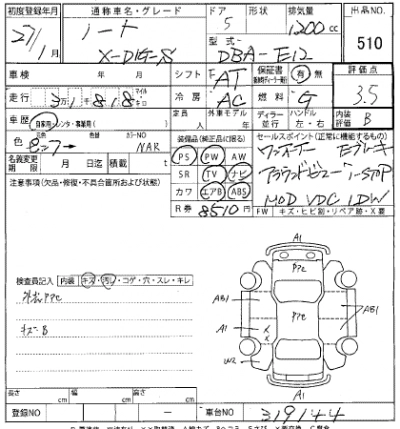 初度登録年月 通称車名・グレード ドア 形状 排気量 出品NO
27/1月 ノート 5 1200cc 510
X-DIG-S 型式 DBA-E12
車検 年 月 シフト F AT 保証書 有 無 評価点
走行 3万1千818 マイル キロ 冷房 AC 燃料 G 3.5
車歴 自家用・レンタ・事業用( ) 定員 人 外車モデル 年 ディーラー 並行 ハンドル 左・右 内装評価 B
色 → カラーNO NAR 装備品(純正品に限る) セールスポイント(正常に機能するもの)
名義変更期限 月 日迄 積載 t PS PW AW ワンオーナー Eブレーキ
注意事項(欠品・修復・不具合箇所および状態) SR TV ナビ アラウンドビュー I-STOP
カワ エアB ABS MOD VDC LDW
R券 8510円 FW キズ・ヒビ割・リペア跡・X要
検査員記入 内装 キズ・汚レ・コゲ・穴・スレ・キレ
PPC
キズB
A1
PPC
AB1 PPC AB1
A1
W2
A1
長さ cm 幅 cm 高さ cm
登録NO 車台NO 319144